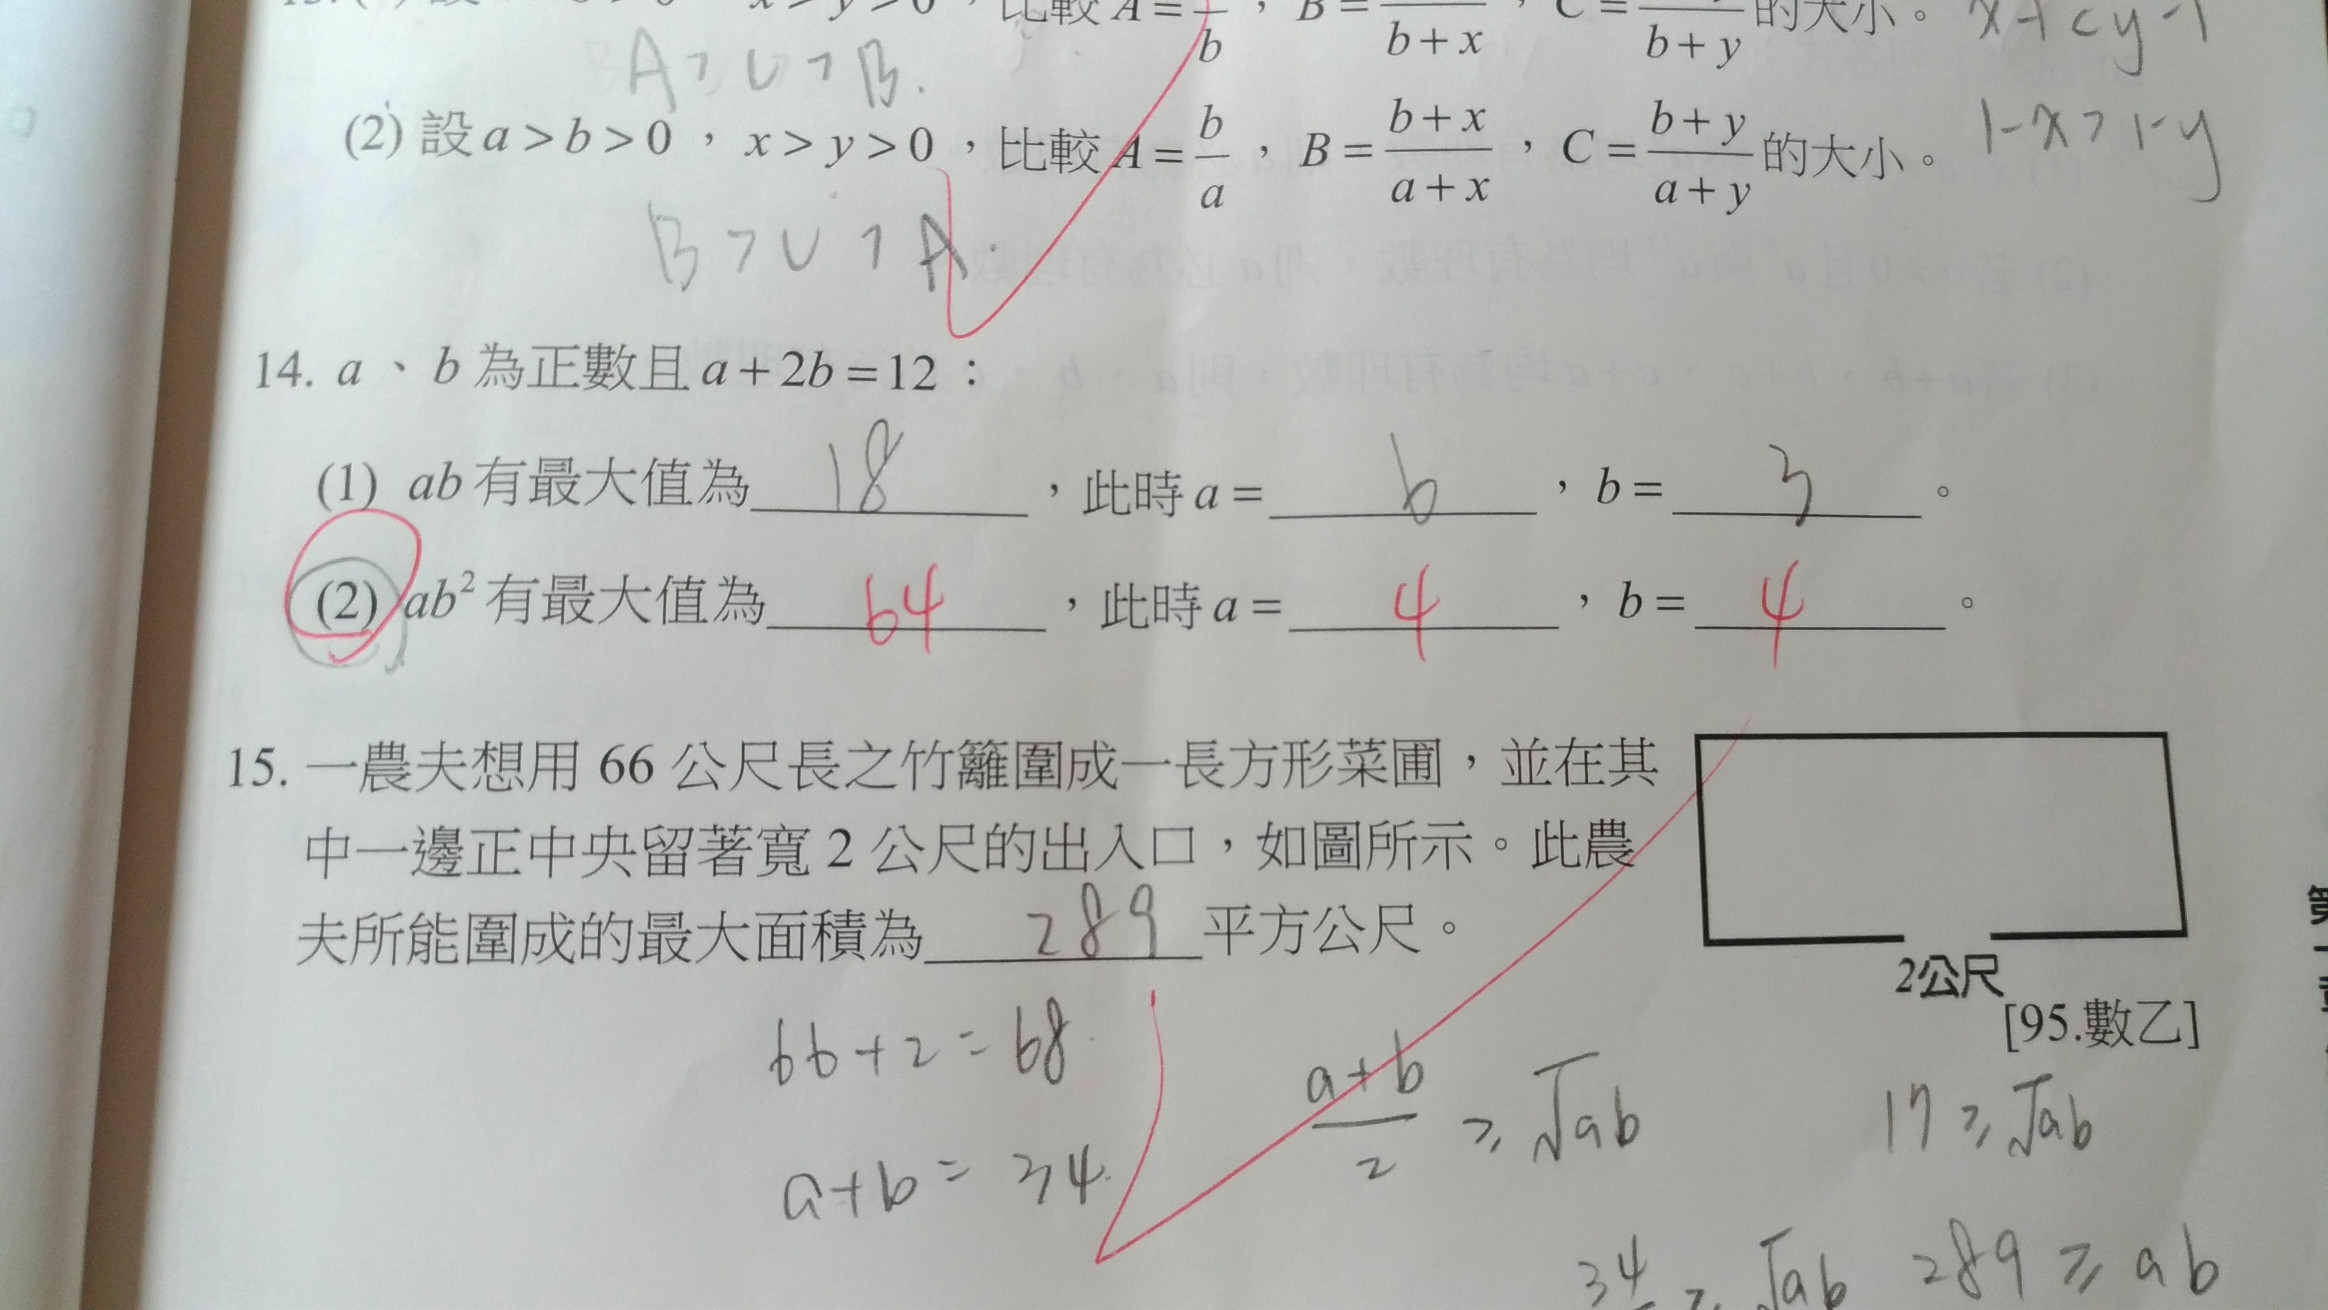 比較 A = — / b , B = — / b + x , C = — / b + y 的大小。 x + c y -1
A > C > B.
(2) 設 a > b > 0 , x > y > 0 ,比較 A = b/a , B = (b + x)/(a + x) , C = (b + y)/(a + y) 的大小。 1-x > 1-y
B > C > A.
14. a 、 b 為正數且 a + 2b = 12 :
(1) ab 有最大值為 18 ,此時 a = 6 , b = 3 。
(2) ab² 有最大值為 64 ,此時 a = 4 , b = 4 。
15. 一農夫想用 66 公尺長之竹籬圍成一長方形菜圃,並在其
中一邊正中央留著寬 2 公尺的出入口,如圖所示。此農
夫所能圍成的最大面積為 289 平方公尺。
2公尺
[95.數乙]
66 + 2 = 68.
a + b = 34.
(a + b)/2 ≥ √ab
17 ≥ √ab
34 ≥ √ab
289 ≥ ab